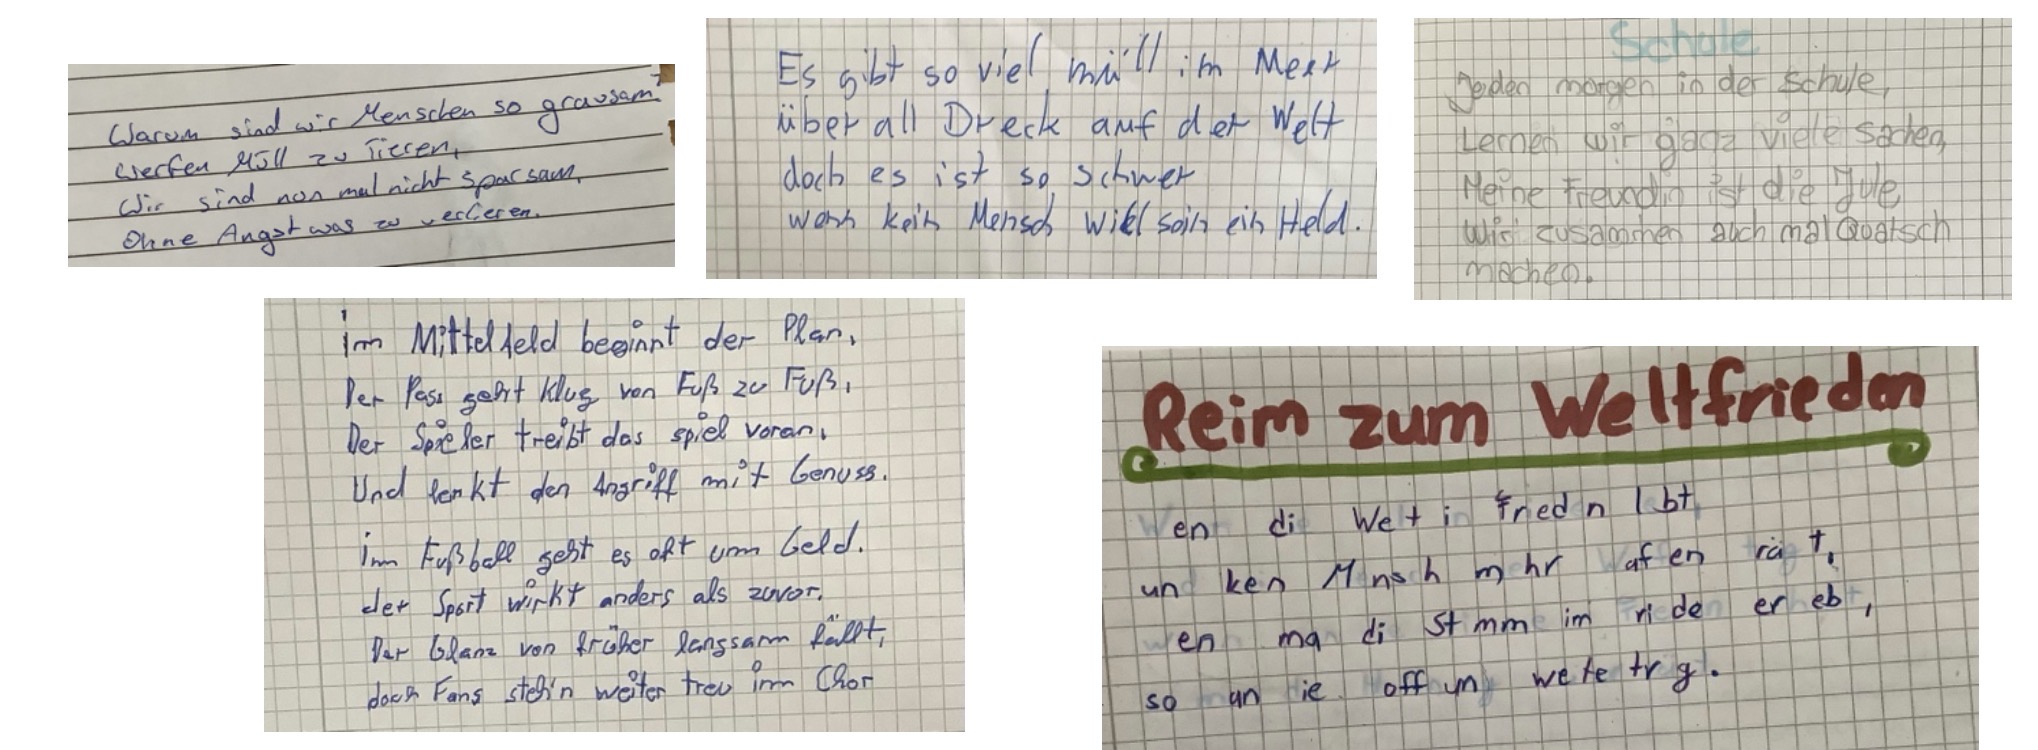 Warum sind wir Menschen so grausam?
Werfen Müll zu Tieren,
Wir sind nun mal nicht sparsam,
Ohne Angst was zu verlieren.
Es gibt so viel müll im Meer
überall Dreck auf der Welt
doch es ist so schwer
wenn kein Mensch will sein ein Held.
Schule
Jeden morgen in der Schule,
Lernen wir ganz viele sachen,
Meine Freundin ist die Jule
Wir zusammen auch mal Quatsch
machen.
im Mittelfeld beginnt der Plan,
Der Pass geht klug von Fuß zu Fuß,
Der Spieler treibt das spiel voran,
Und lenkt den Angriff mit Genuss.
im Fußball geht es oft um Geld.
der Sport wirkt anders als zuvor.
Der Glanz von früher langsam fällt,
doch Fans steh'n weiter treu im Chor
Reim zum Weltfrieden
Wenn die Welt in Frieden lebt,
und ken Mensch mehr Waffen trägt,
wenn man die Stimme im Frieden erhebt,
so man die Hoffnung